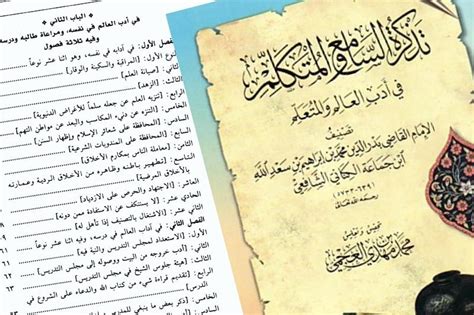 تذكرة السامع والمتكلم
في أدب العالم والمتعلم
تصنيف
الإمام القاضي بدر الدين محمد بن إبراهيم بن سعد الله
ابن جماعة الكناني الشافعي
(٦٣٩-٧٣٣هـ)
رحمه الله تعالى
محمد بن مهدي العجمي
الباب الثاني
في أدب العالم في نفسه، ومراعاة طالبه ودرسه
وفيه ثلاثة فصول
الفصل الأول: في آدابه في نفسه، وهو اثنا عشر نوعاً
الأول: [المراقبة والسكينة والوقار]
الثاني: [صيانة العلم]
الثالث: [الزهد]
الرابع: [تنزيه العلم عن جعله سلماً للأغراض الدنيوية]
الخامس: [التنزه عن دنيء المكاسب والبعد عن مواطن التهم]
السادس: [المحافظة على شعائر الإسلام وإظهار السنن]
السابع: [المحافظة على المندوبات الشرعية]
الثامن: [معاملة الناس بمكارم الأخلاق]
التاسع: [تطهير باطنه وظاهره من الأخلاق الردية وعمارته
بالأخلاق المرضية]
العاشر: [الاجتهاد والحرص على الازدياد]
الحادي عشر: [أن لا يستنكف عن الاستفادة ممن دونه]
الثاني عشر: [الاشتغال بالتصنيف إذا تأهل له]
الفصل الثاني: في أدب العالم في درسه، وفيه اثنا عشر نوعاً
الأول: [الاستعداد لمجلس التدريس والنية فيه]
الثاني: [أدب خروجه من البيت ووصوله إلى مجلس التدريس]
الثالث: [هيئة جلوس الشيخ في مجلس التدريس]
الرابع: [تقديم قراءة شيء من كتاب الله والدعاء على الشروع في